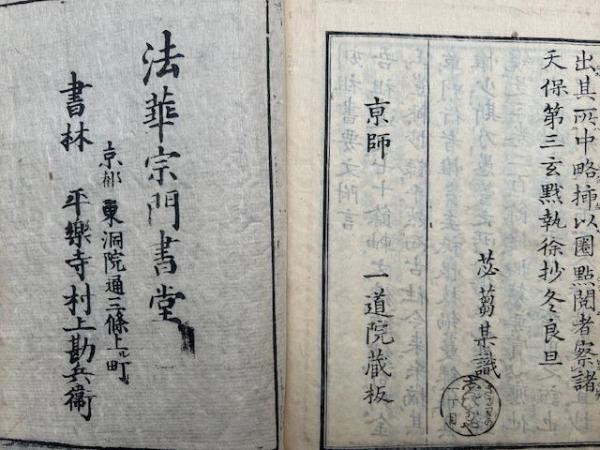 出其所中略揷以圈點閱者察諸
天保第三玄黓執徐抄冬良旦
苾蒭某識
京師 一道院藏板
法華宗門書堂
京都東洞院通三條上ル町
書林 平樂寺村上勘兵衞